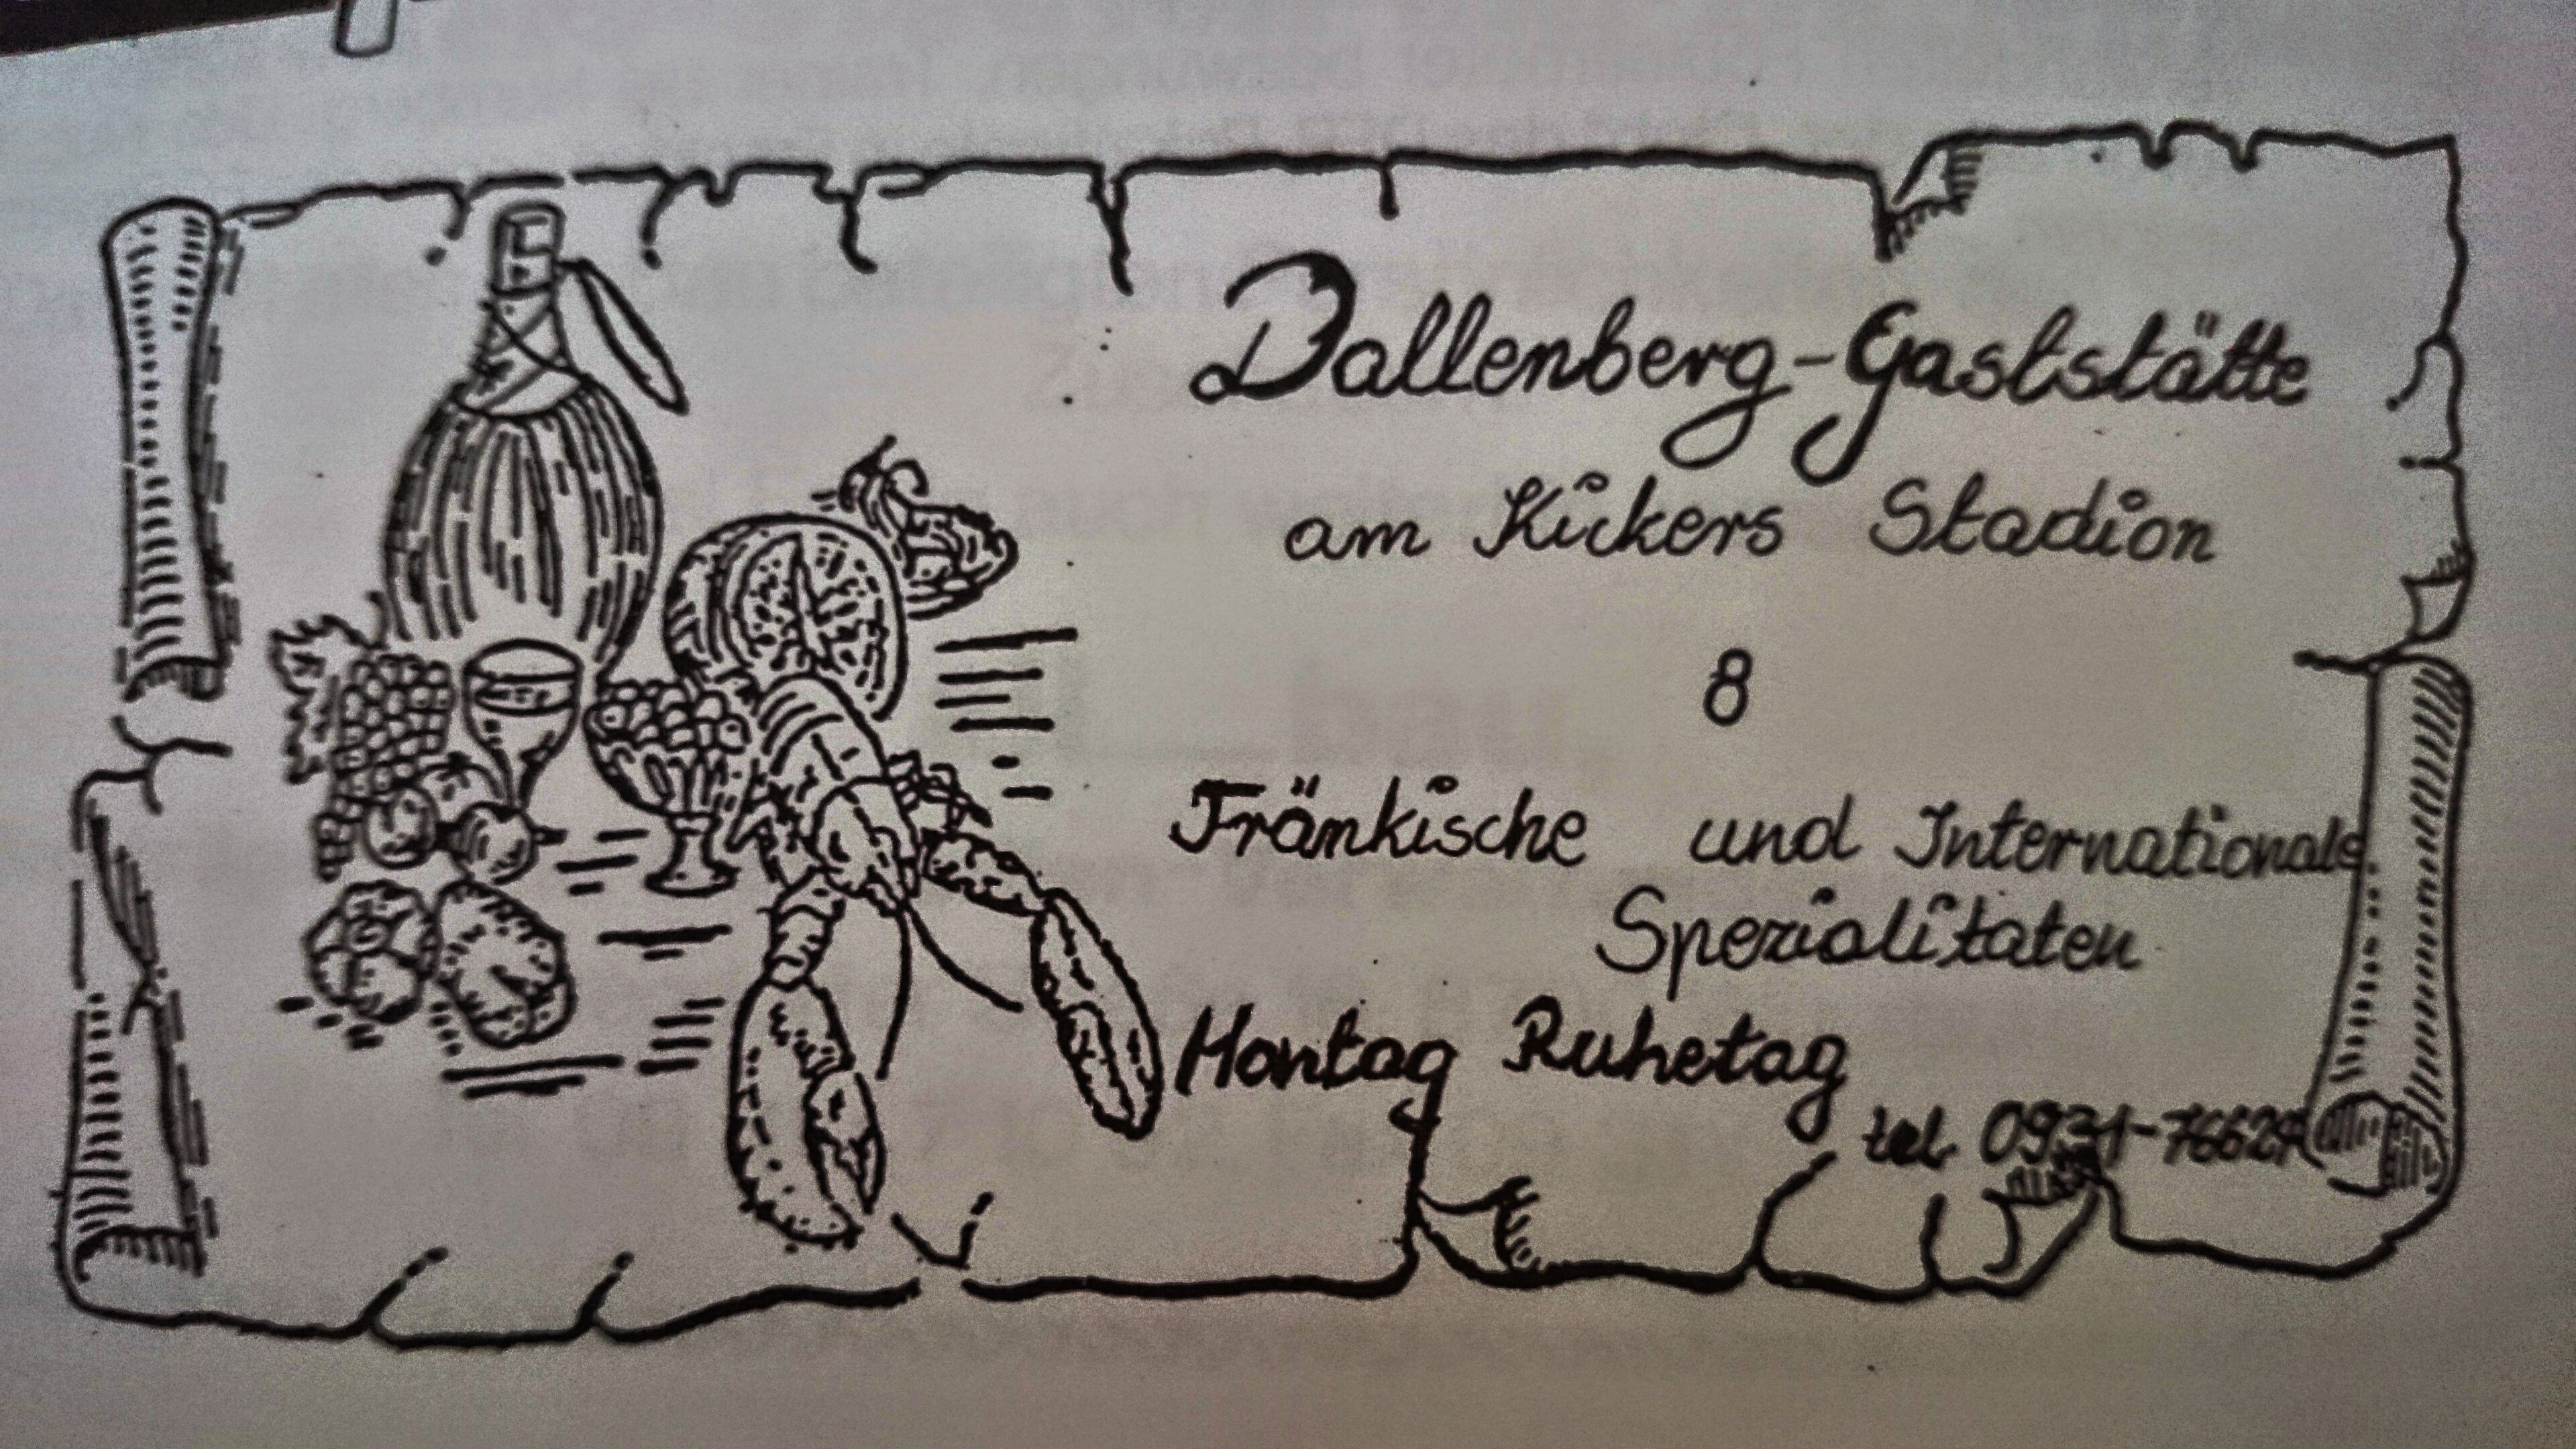 Dallenberg-Gaststätte
am Kickers Stadion
8
Fränkische und Internationale
Spezialitaten
Montag Ruhetag
tel 0931-76627